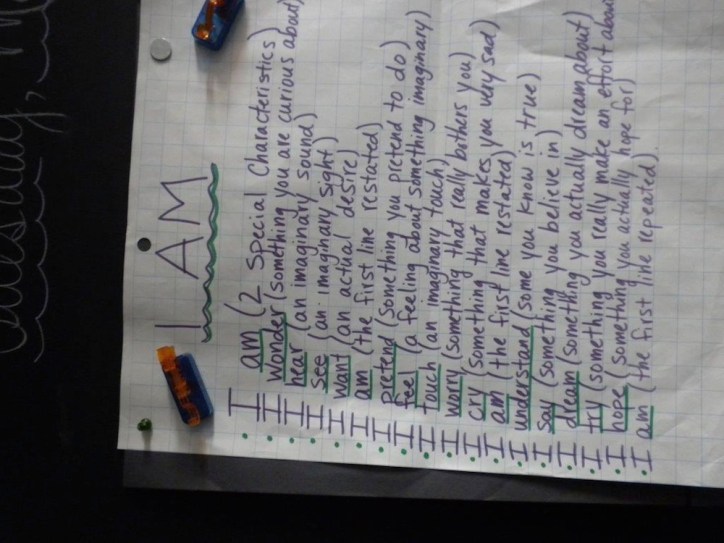 I AM
I am (2 Special Characteristics)
I wonder (something you are curious about)
I hear (an imaginary sound)
I see (an imaginary sight)
I want (an actual desire)
I am (the first line restated)
I pretend (something you pretend to do)
I feel (a feeling about something imaginary)
I touch (an imaginary touch)
I worry (something that really bothers you)
I cry (something that makes you very sad)
I am (the first line restated)
I understand (some you know is true)
I say (something you believe in)
I dream (something you actually dream about)
I try (something you really make an effort about
I hope (something you actually hope for)
I am (the first line repeated)